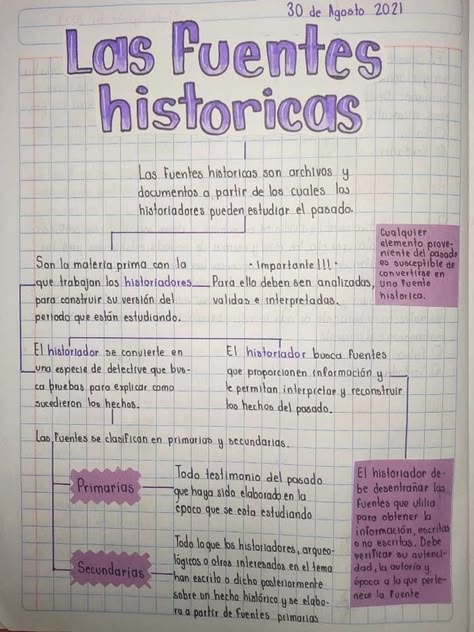 30 de Agosto 2021
Las fuentes
historicas
Las fuentes historicas son archivos y
documentos a partir de los cuales los
historiadores pueden estudiar el pasado.
Cualquier
elemento prove-
niente del pasado
es susceptible de
convertirse en
una fuente
historica.
Son la materia prima con la
que trabajan los historiadores
para construir su versión del
periodo que están estudiando.
· Importante!!! ·
Para ello deben ser analizadas,
validas e interpretadas.
El historiador se convierte en
una especie de detective que bus-
ca pruebas para explicar como
sucedieron los hechos.
El historiador busca fuentes
que proporcionen información y
le permitan interpretar y reconstruir
los hechos del pasado.
Las fuentes se clasifican en primarias y secundarias.
Primarias
Todo testimonio del pasado
que haya sido elaborado en la
época que se esta estudiando
Secundarias
Todo lo que los historiadores, arqueo-
lógicos o otros interesados en el tema
han escrito o dicho posteriormente
sobre un hecho histórico y se elabo-
ra a partir de fuentes primarias
El historiador de-
be desentrañar las
fuentes que utiliza
para obtener la
información, escritas
o no escritas. Debe
verificar su autenci-
dad, la autoría y
época a la que perte-
nece la fuente